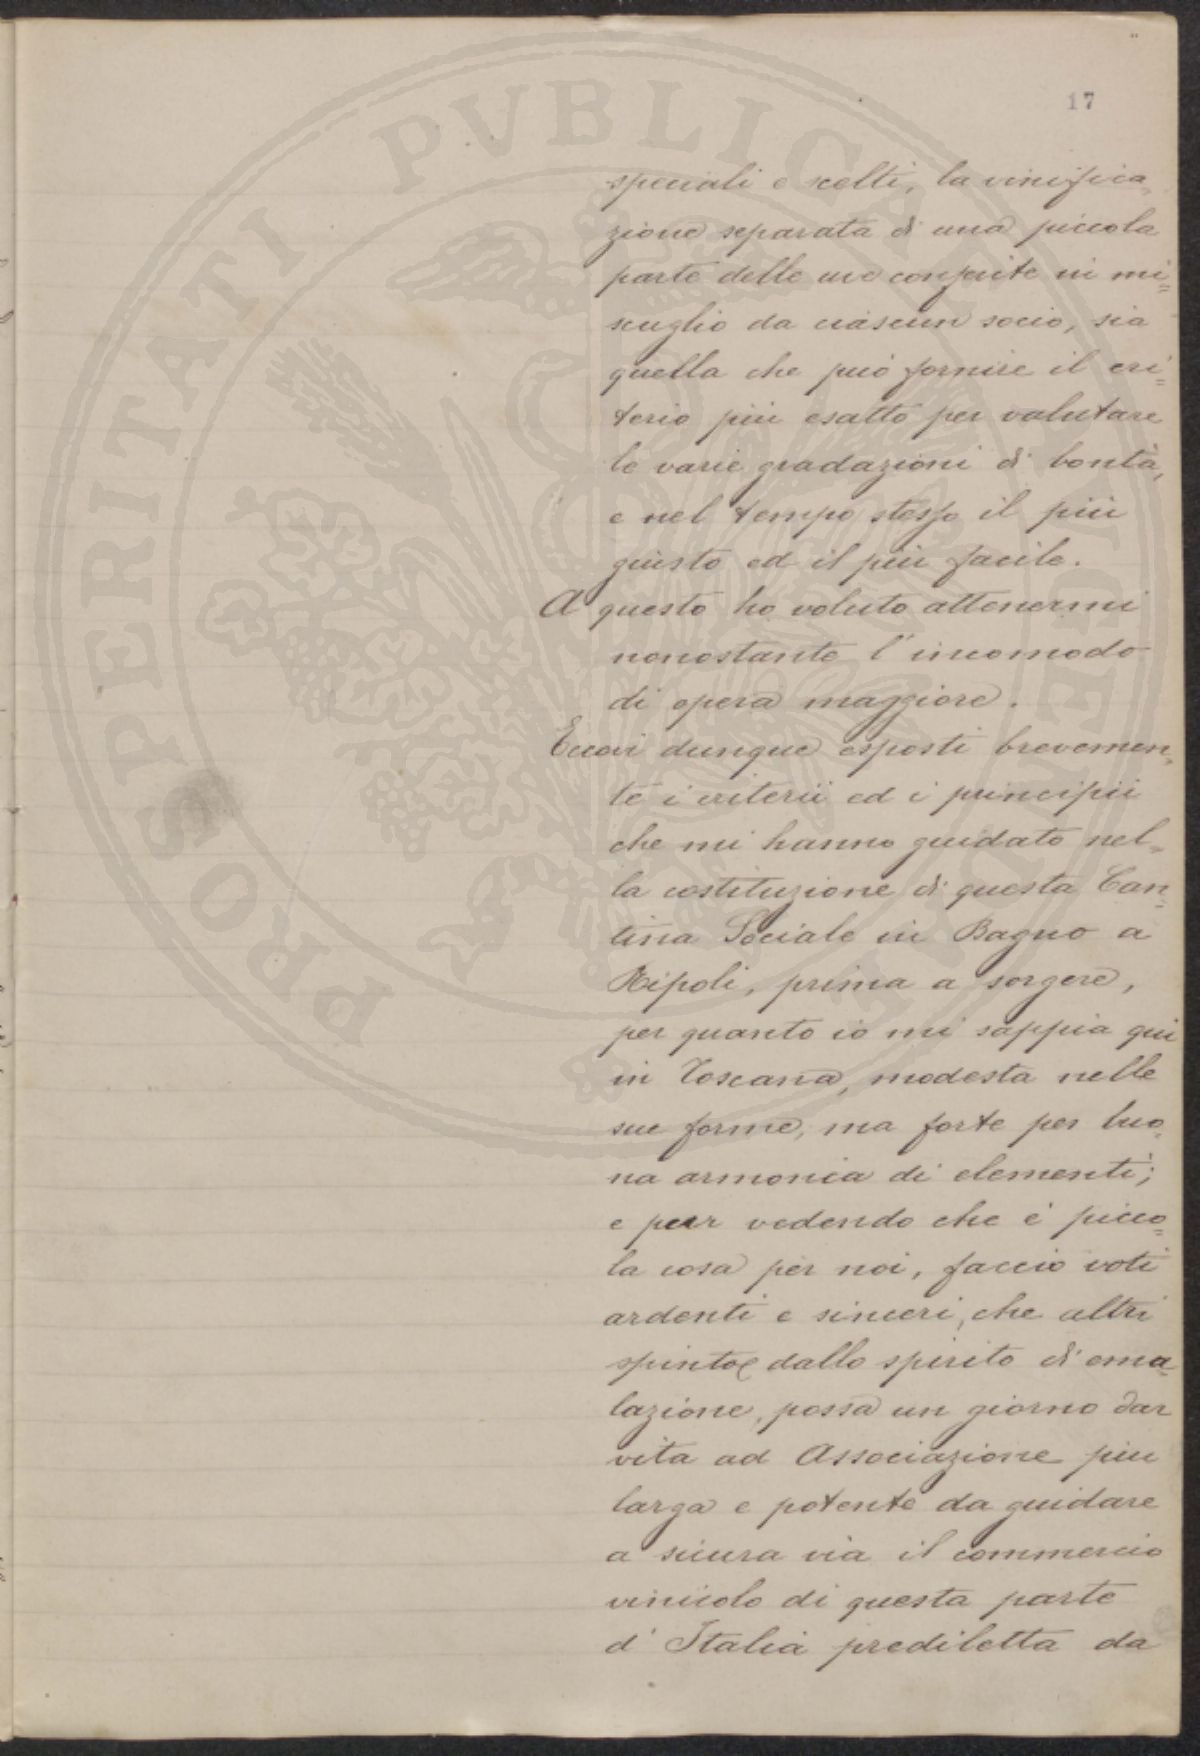 17
speciali e scelti, la vinifica-
zione separata di una piccola
parte delle uve conferite in mi=
scuglio da ciascun socio, sia
quella che può fornire il cri=
terio più esatto per valutare
le varie gradazioni di bontà,
e nel tempo stesso il più
giusto ed il più facile.
A questo ho voluto attenermi
nonostante l'incomodo
di opera maggiore.
Eccovi dunque esposti brevemen-
te i criterii ed i principii
che mi hanno guidato nel-
la costituzione di questa Can=
tina Sociale in Bagno a
Ripoli, prima a sorgere,
per quanto io mi sappia qui
in Toscana, modesta nelle
sue forme, ma forte per buo-
na armonia di elementi;
e pur vedendo che è picco=
la cosa per noi, faccio voti
ardenti e sinceri, che altri
spinto dallo spirito di emu-
lazione, possa un giorno dar
vita ad Associazione più
larga e potente da guidare
a sicura via il commercio
vinicolo di questa parte
d'Italia prediletta da
PROSPERITATI PVBLICAE AVGENDAE